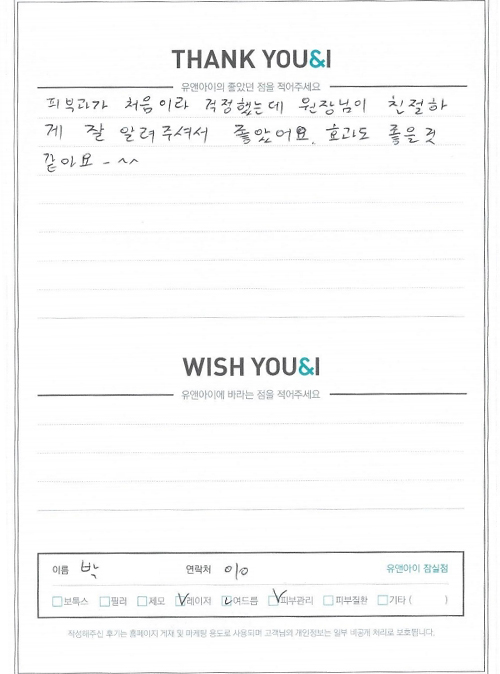 THANK YOU&I
유앤아이의 좋았던 점을 적어주세요
피부과가 처음이라 걱정했는데 원장님이 친절하
게 잘 알려주셔서 좋았어요. 효과도 좋을것
같아요 - ^^
WISH YOU&I
유앤아이에 바라는 점을 적어주세요
이름 박 연락처 010 유앤아이 잠실점
보톡스 필러 제모 레이저 여드름 피부관리 피부질환 기타 ( )
작성해주신 후기는 홈페이지 게재 및 마케팅 용도로 사용되며 고객님의 개인정보는 일부 비공개 처리로 보호됩니다.